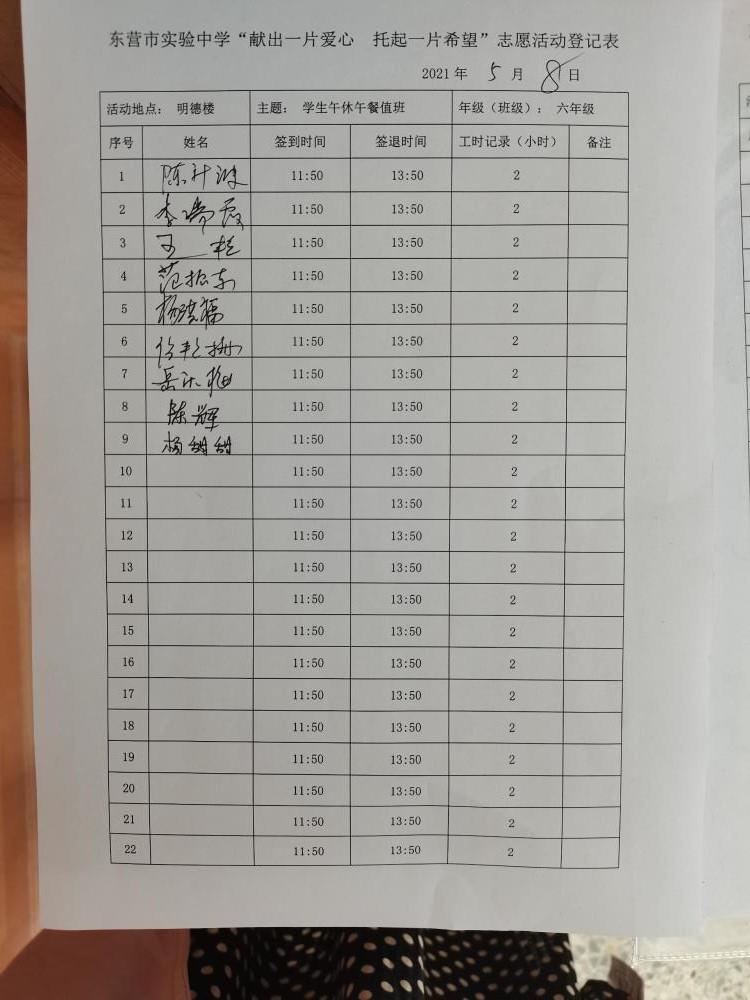 东营市实验中学“献出一片爱心 托起一片希望”志愿活动登记表
2021 年 5 月 8 日
活动地点： 明德楼 主题： 学生午休午餐值班 年级（班级）： 六年级
序号 姓名 签到时间 签退时间 工时记录（小时） 备注
1 11:50 13:50 2
2 李瑞霞 11:50 13:50 2
3 王艳 11:50 13:50 2
4 范振东 11:50 13:50 2
5 杨洪福 11:50 13:50 2
6 11:50 13:50 2
7 11:50 13:50 2
8 陈辉 11:50 13:50 2
9 杨甜甜 11:50 13:50 2
10 11:50 13:50 2
11 11:50 13:50 2
12 11:50 13:50 2
13 11:50 13:50 2
14 11:50 13:50 2
15 11:50 13:50 2
16 11:50 13:50 2
17 11:50 13:50 2
18 11:50 13:50 2
19 11:50 13:50 2
20 11:50 13:50 2
21 11:50 13:50 2
22 11:50 13:50 2